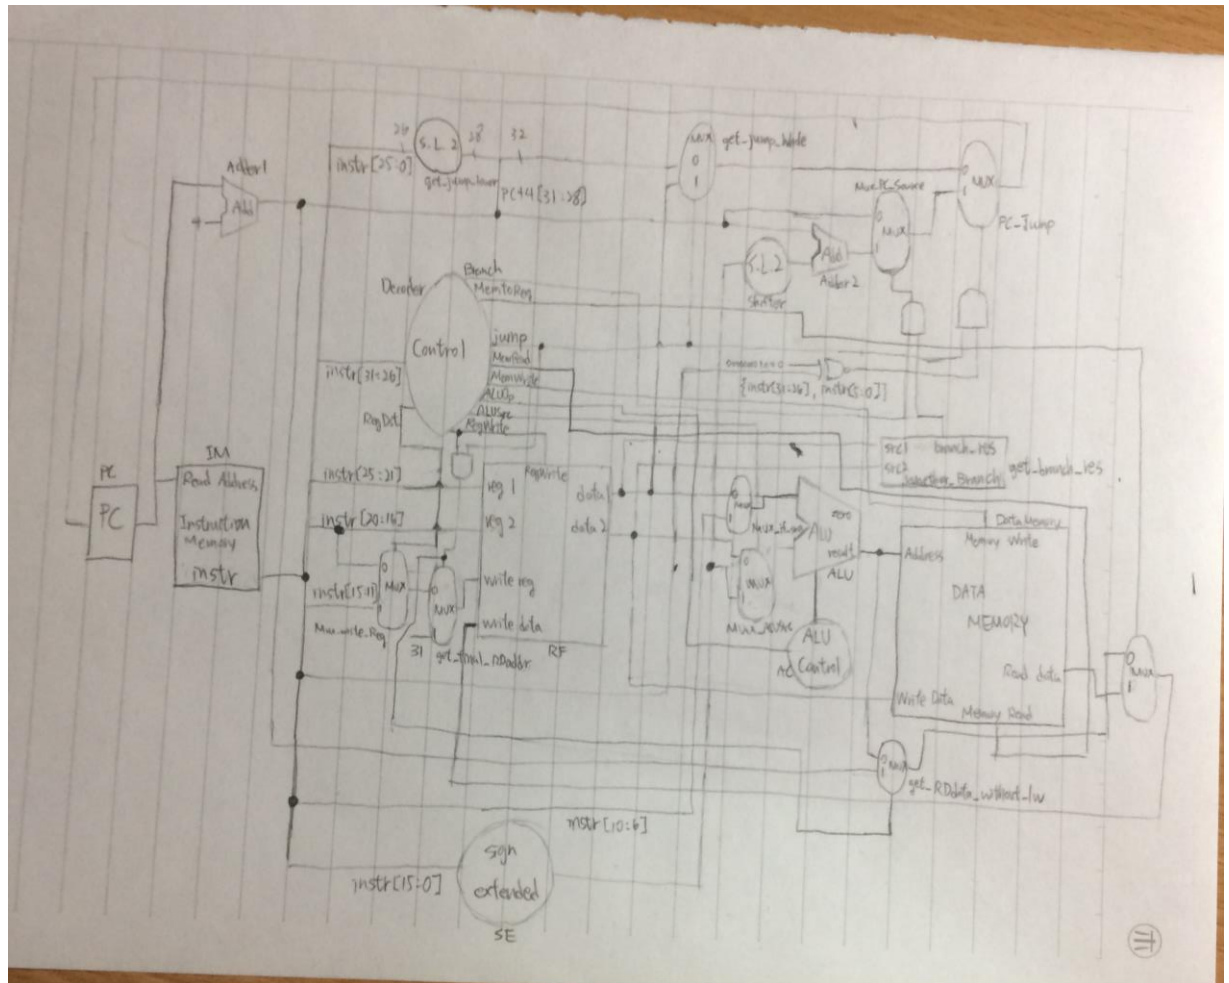 26
S.L.2
28
32
instr[25:0]
get_jump_lower
PC+4[31:28]
MUX
0
1
get_jump_whole
Adder1
Add
4
Mux_PC_Source
0
MUX
1
0
MUX
1
PC_Jump
S.L.2
Shifter
Add
Adder2
Decoder
Control
Branch
MemtoReg
jump
MemRead
MemWrite
ALUOp
ALUSrc
RegWrite
instr[31:26]
RegDst
{instr[31:26], instr[5:0]}
src1
branch_res
src2
get_branch_res
PC
PC
IM
Read Address
Instruction
Memory
instr
instr[25:21]
instr[20:16]
instr[15:11]
0
MUX
1
Mux_Write_Reg
0
MUX
31
get_final_RDaddr
RegWrite
reg 1
reg 2
write reg
write data
data1
data 2
RF
0
1
MUX
zero
ALU
result
ALU
ALU
Control
AC
Data Memory
Memory Write
Address
DATA
MEMORY
Read data
Write Data
Memory Read
0
MUX
1
0
MUX
1
get_RDdata_without_lw
instr[10:6]
instr[15:0]
sgn
extended
SE